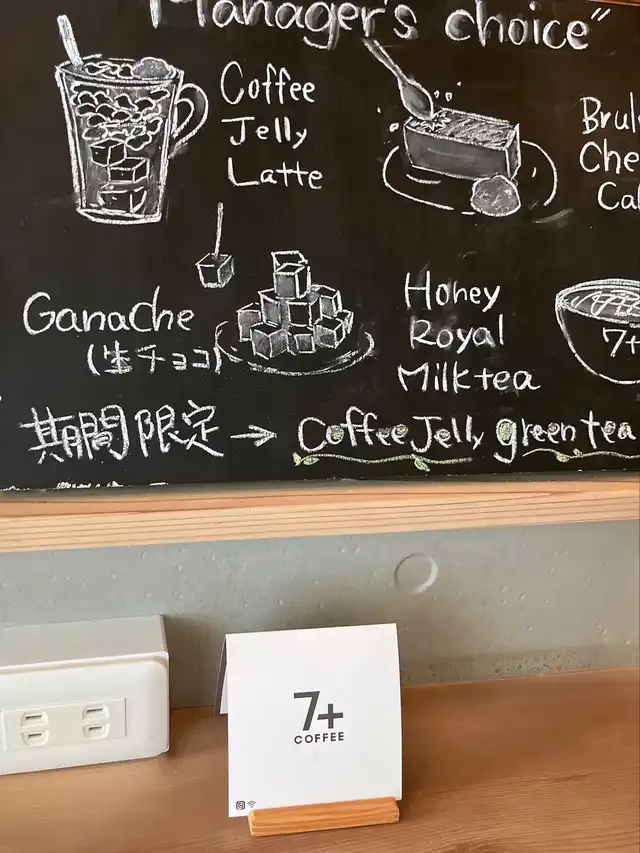 Manager's choice"
Coffee
Jelly
Latte
Ganache
(生チョコ)
Honey
Royal
Milk tea
7+
期間限定 → Coffee Jelly green tea
7+
COFFEE